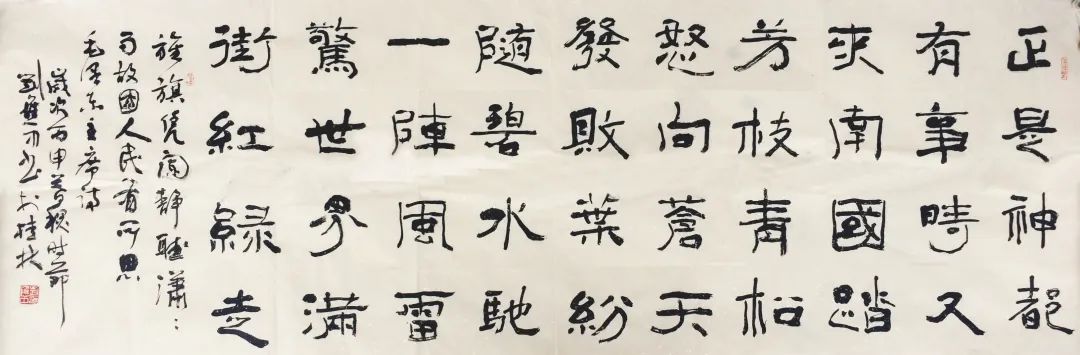 正是神都
有事時又
來南國踏
芳枝青松
怒向蒼天
發敗葉紛
隨碧水馳
一陣風雷
驚世界滿
街紅綠走
旌旗凭阑静聽潇々
雨故國人民有所思
毛澤东主席诗
歲次丙申秋时節
劉书於桂林